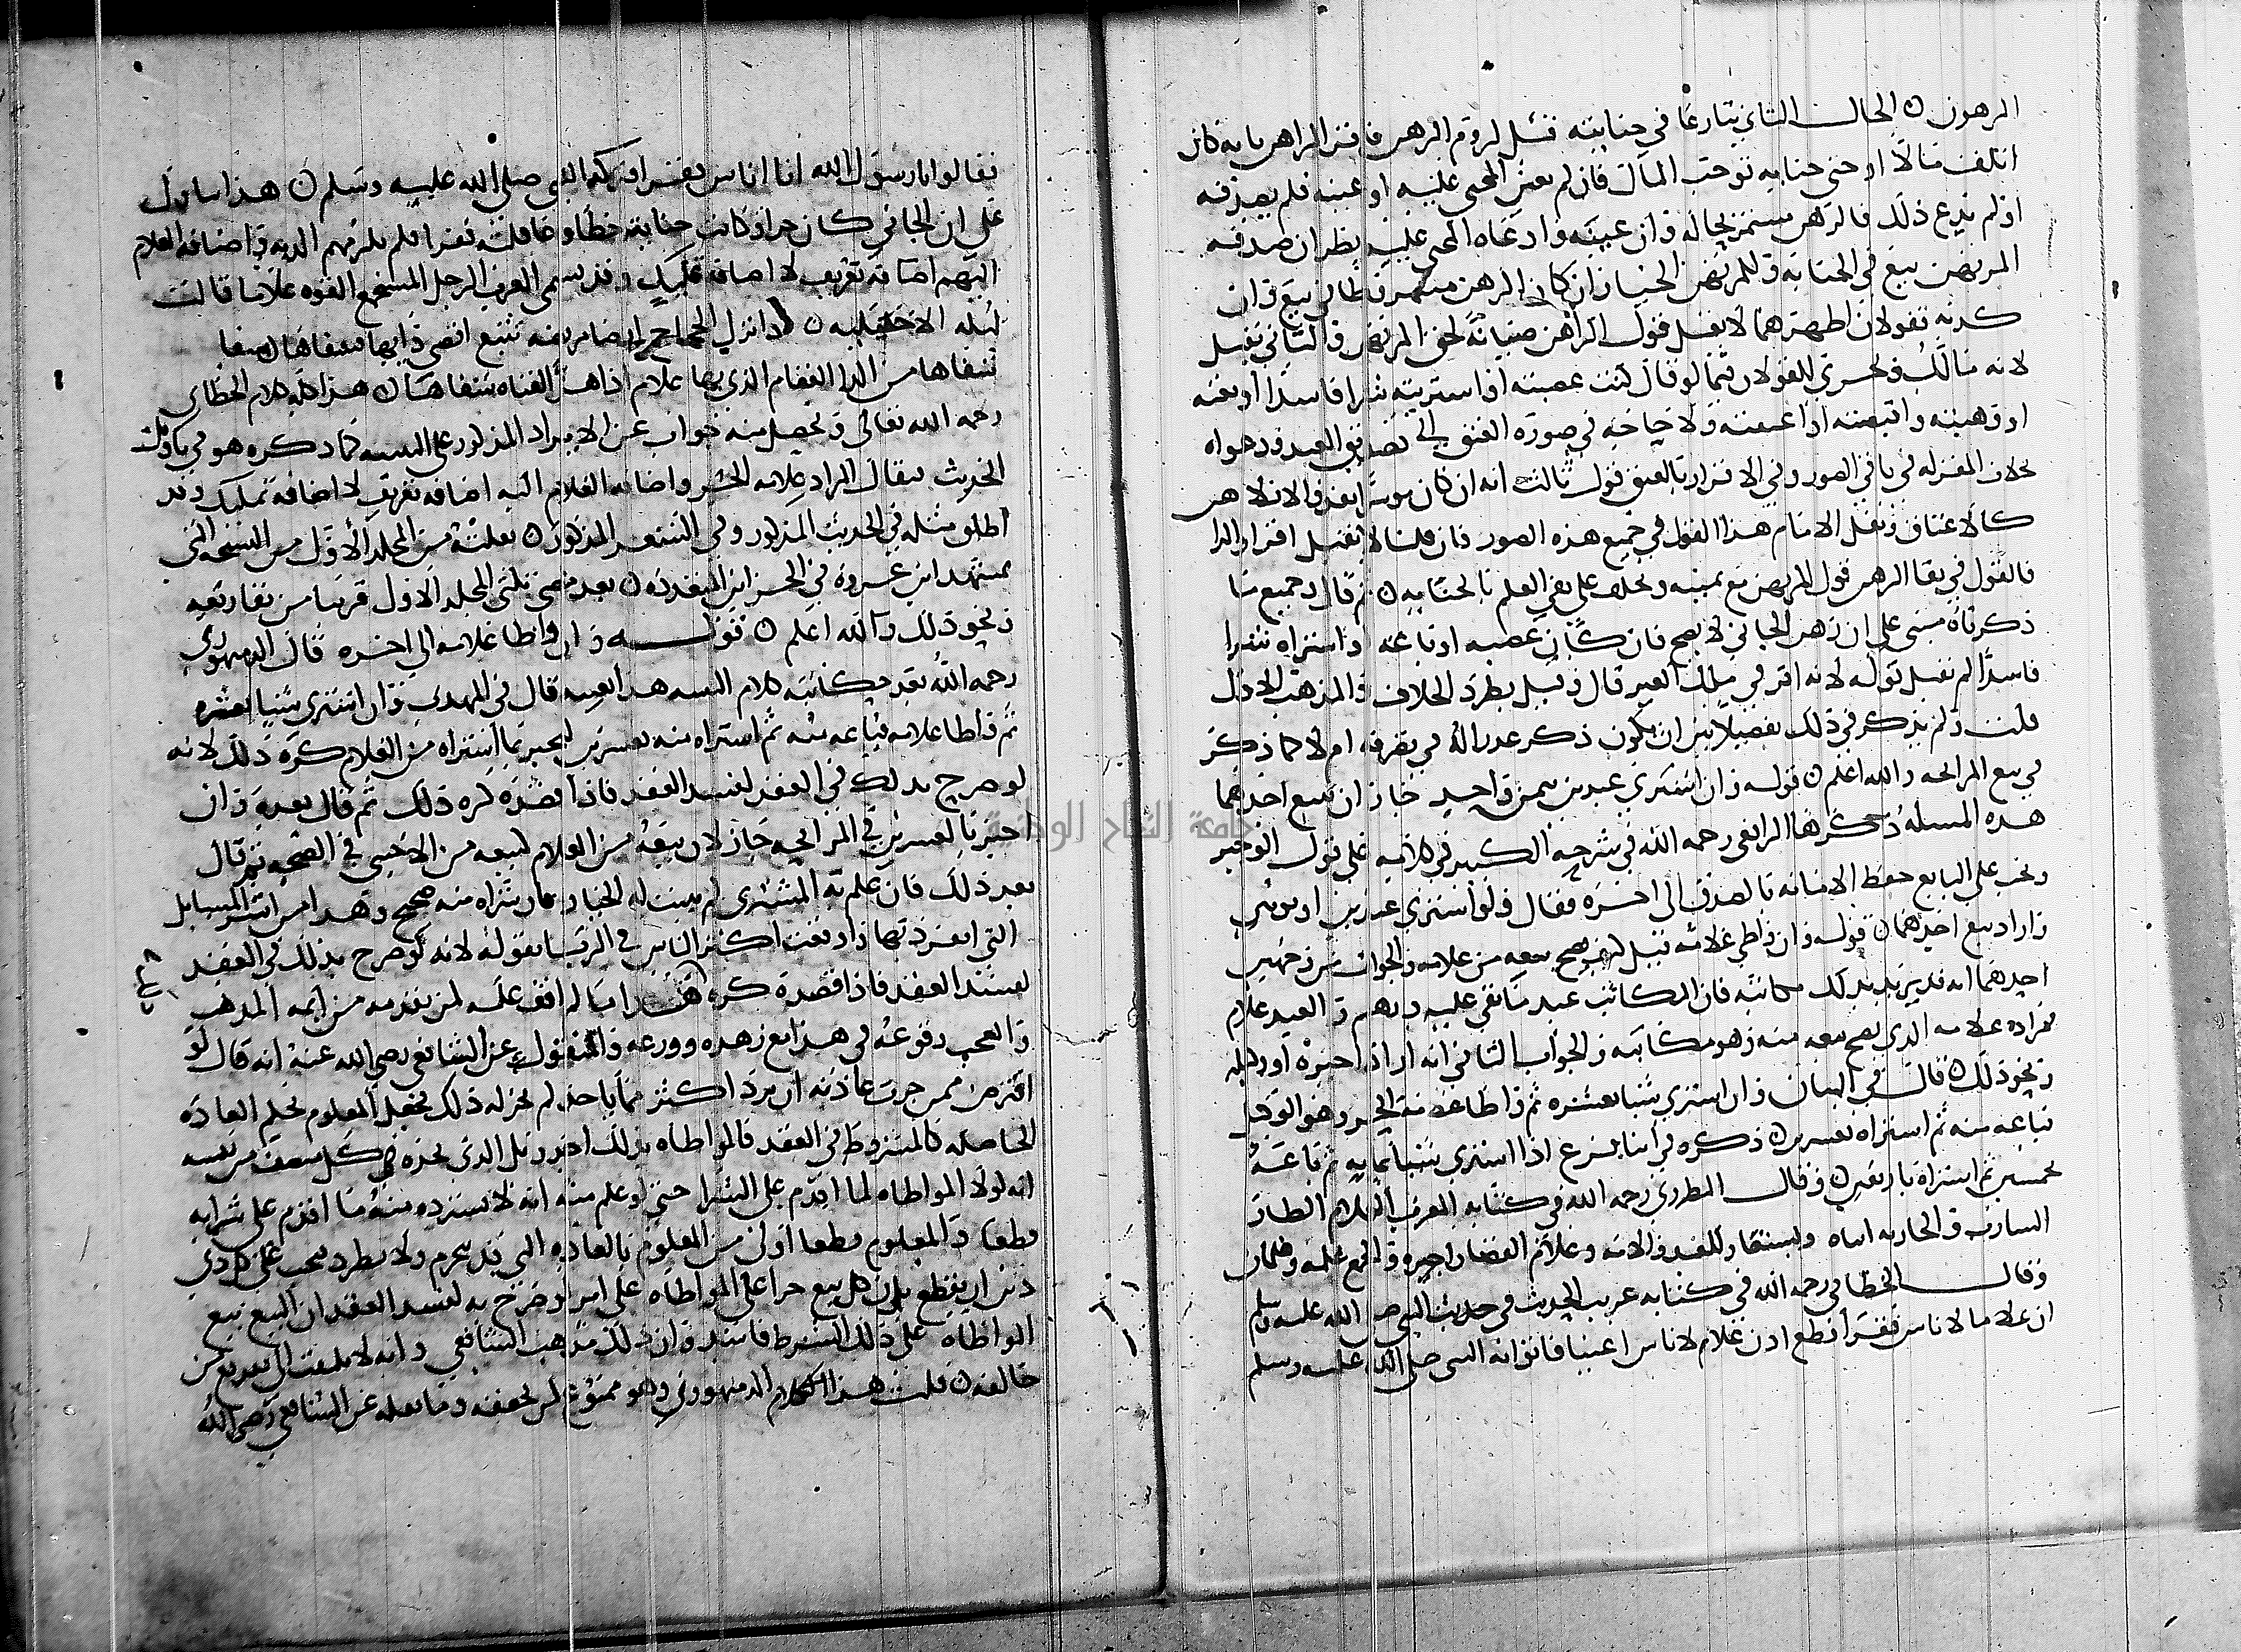 المرهون ه الحال الثاني تنازعا في جنايته قبل لزوم الرهن فاقر الراهن بانه كان
اتلف مالا او جنى جناية توجب المال فان لم يعين المجني عليه او عينه فلم يصدقه
او لم يدع ذلك فالرهن مستمر بحاله وان عينه وادعاه المجني عليه نظر ان صدقه
المرتهن بيع في الجناية وللمرتهن الخيار ان كان الرهن مشروطا في بيع وان
كذبه فقولان اظهرهما لا يقبل قول الراهن صيانة لحق المرتهن والثاني يقبل
لانه مالك ويجري القولان فيما لو قال كنت غصبته او اشتريته شرا فاسدا او بعته
او وهبته واقبضته او اعتقته ولا حاجة في صورة العتق الى تصديق العبد ودعواه
بخلاف المقر له في باقي الصور وفي الاقرار بالعتق قول ثالث انه ان كان موسرا نفذ والا فلا
كالاعتاق ونقل الامام هذا القول في جميع هذه الصور فان قلنا لا يقبل اقرار الراهن
فالقول في بقا الرهن قول المرتهن مع يمينه ويحلف على نفي العلم بالجناية ه ثم قال وجميع ما
ذكرناه مبني على ان رهن الجاني لا يصح فان كان غصبه او باعه او اشتراه شرا
فاسدا لم نقبل قوله لانه اقر في ملك الغير قال وقيل بطرد الخلاف والمذهب الاول
قلت ولم يذكر في ذلك تفصيلا بين ان يكون ذكر عذرا له في تصرفه ام لا كما ذكر
في بيع المرابحة والله اعلم ه قوله وان اشترى عبدين بثمن واحد جاز ان يبيع احدهما
هذه المسله ذكرها الرافعي رحمه الله في شرحه الكبير في كلامه على قول الوجيز
ويجب على البايع حفظ الامانة بالصدق الى اخره فقال ولو اشترى عبدين او ثوبين
واراد بيع احدهما ه قوله وان واطى غلامه قيل كيف يصح بيعه من غلامه والجواب من وجهين
احدهما انه قد يريد بذلك مكاتبه فان المكاتب عبد ما بقي عليه درهم والعبد غلام
فمراده غلامه الذي يصح بيعه منه وهو مكاتبه والجواب الثاني انه اراد اجيره او وكيله
ونحو ذلك ه قال في البيان وان اشترى شيا بعشره ثم واطا غلامه الحر وهو الوكيل
فباعه منه ثم اشتراه بعشرين ه ذكره في اثنا فرع اذا اشترى شيا بمايه ثم باعه
بخمسين ثم اشتراه باربعين ه وقال المطرزي رحمه الله في كتابه المغرب الغلام الطار
الشارب والجارية انثاه ويستعار للعبد والامة وغلام القصار اجيره والجمع غلمة وغلمان
وقال الخطابي رحمه الله في كتابه غريب الحديث في حديث النبي صلى الله عليه وسلم
ان غلاما لاناس فقرا قطع اذن غلام لاناس اغنيا فاتوا به النبي صلى الله عليه وسلم
فقالوا يا رسول الله انا اناس فقرا فتركه النبي صلى الله عليه وسلم ه هذا يتاول
على ان الجاني كان حرا وكانت جنايته خطا وعاقلته فقرا فلم يلزمهم الدية واضافة الغلام
اليهم اضافة تعريف لا اضافة تمليك وقد يسمي العرب الرجل المستجمع القوه غلاما قالت
ليلى الاخيلية ه اذا نزل الحجاج ارضا مريضة تتبع اقصى دايها فشفاها ه شفا
شفاها من الدا العقام الذي بها غلام اذا هز القناة شفاها ه هذا كله كلام الخطابي
رحمه الله تعالى وتحصل منه جواب عن الايراد المذكور على التنبيه كما ذكره هو في تاويل
الحديث فيقال المراد غلامه الحر واضافة الغلام اليه اضافة تعريف لا اضافة تمليك وقد
اطلق مثله في الحديث المذكور وفي الشعر المذكور ه نقلته من المجلد الاول من النسخة التي
بمشهد ابن عروة في الخزاين المنفرده ه بعد مضي ثلثي المجلد الاول قريبا من نقار نعيه
ونحو ذلك والله اعلم ه قوله وان واطا غلامه الى اخره قال الدمنهوري
رحمه الله بعد حكايته كلام التنبيه هذا بعينه قال في المهذب وان اشترى شيا بعشرة
ثم واطا غلامه فباعه منه ثم اشتراه منه بعشرين ليخبر بما اشتراه من الغلام كره ذلك لانه
لو صرح بذلك في العقد لفسد العقد فاذا قصده كره ذلك ثم قال بعده وان
اخبر بالعشرين في المرابحة جاز لان بيعه من الغلام كبيعه من الاجنبي في الصحة ثم قال
بعد ذلك فان علم به المشتري لم يثبت له الخيار لان شراه منه صحيح وهذا من اشر المسايل
التي انفرد بها واوقعت اكثر الناس في الربا بقوله لانه لو صرح بذلك في العقد
لفسد العقد فاذا قصده كره هذا ما لم اقف عليه لمن تقدمه من ايمة المذهب
والعجب وقوعه في هذا مع زهده وورعه والمنقول عن الشافعي رضي الله عنه انه قال لو
اقترض ممن جرت عادته ان يرد اكثر مما ياخذ لم يجز له ذلك فجعل المعلوم بحكم العادة
الحاصله كالمشروط في العقد فالمواطاه بذلك اجدر بل الذي يجده في كل منصف من نفسه
انه لولا المواطاه لما اقدم على الشرا حتى لو علم منه انه لا يسترده منه ما اقدم على شرايه
قطعا والمعلوم قطعا اولى من المعلوم بالعاده التي قد تنخرم ولا تطرد فيجب على كل ذي
دين ان يقطع بان كل بيع جرا على المواطاه على امر لو صرح به لفسد العقد ان البيع تبع
المواطاه على ذلك الشرط فاسد وان ذلك مذهب الشافعي وانه لا يلتفت الى تفريع من
خالفه ه قلت هذا الكلام الدمنهوري وهو ممنوع لمن لحققه وما نقله عن الشافعي رضي الله
جامعة النجاح الوطنية